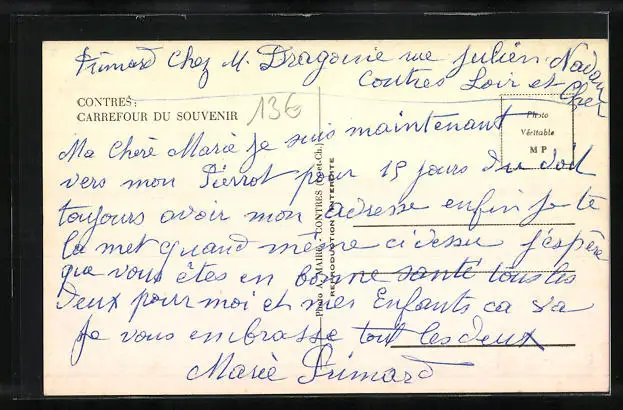 Primard Chez M. Dragonie rue Julien Nadau
Contres Loir et Cher
CONTRES:
CARREFOUR DU SOUVENIR
136
Photo
Véritable
M P
Ma Chèrè Marie Je suis maintenant
vers mon Pierrot pour 15 jours Du doit
toujours avoir mon adresse enfin je te
la met quand même cidessu j'espère
que vous êtes en bonne santé tous les
Deux pour moi et mes Enfants ca va
Je vous embrasse tout les deux
Marie Primard
Photo A. MAIRE - CONTRES (L.-et-Ch.)
REPRODUCTION INTERDITE